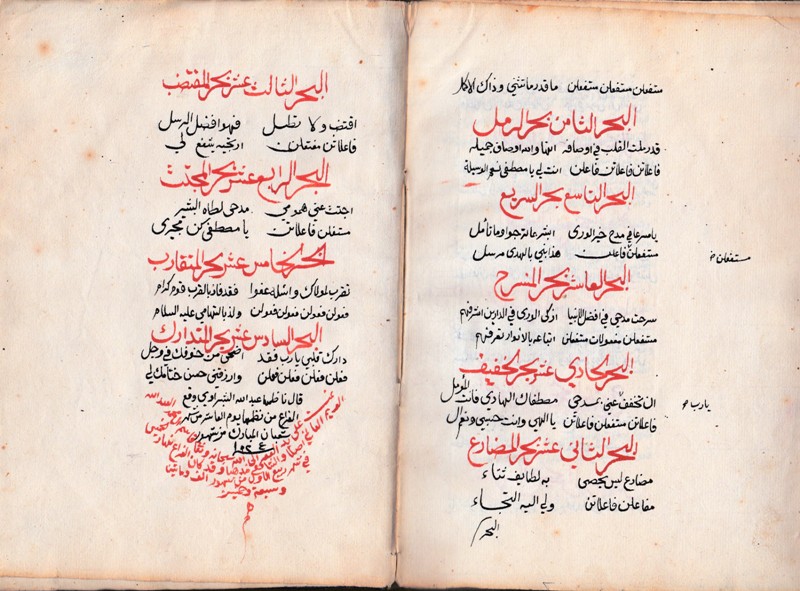 مستفعلن مستفعلن مستفعلن ما قدر ما تثني وذاك الاكمل
البحر الثامن بحر الرمل
قد رملت القلب في اوصافه انها والله اوصاف جميله
فاعلاتن فاعلاتن فاعلن انت لي يا مصطفى نعم الوسيلة
البحر التاسع بحر السريع
يا مسرعا في مدح خير الورى ابشر بما ترجوا وما تأمل
مستفعلن فاعلن هذا نبي بالهدى مرسل
مستفعلن
البحر العاشر بحر المنسرح
سرحت مدحي في افضل الانبيا ازكى الورى في الدارين اشرفهم
مستفعلن مفعولات مستفعلن اتباعه بالانوار تعرفهم
البحر الحادي عشر بحر الخفيف
ان تخفف عني بمدحي مصطفاك الهادي فانت المؤمل
يا رب
فاعلاتن مستفعلن فاعلاتن يا الهي وانت حسبي ونعم ال
البحر الثاني عشر بحر المضارع
مضارع ليس يحصى به لطايف ثناء
مفاعلن فاعلاتن ولي اليه التجاء
البحر
البحر الثالث عشر بحر المقتضب
اقتضب ولا تطل فهو افضل الرسل
فاعلاتن مفتعلن ارتجيه يشفع لي
البحر الرابع عشر بحر المجتث
اجتث عني همومي مدحي لطاه البشير
مستفعلن فاعلاتن يا مصطفى كن مجيري
البحر الخامس عشر بحر المتقارب
تقرب لمولاك واسئله عفوا فقد فاز بالقرب قوم كرام
فعولن فعولن فعولن فعولن ولذ بالتهامي عليه السلام
البحر السادس عشر بحر المتدارك
دارك قلبي يا رب فقد اضحى من خوفك في وجل
فعلن فعلن فعلن فعلن وارزقني حسن ختامك لي
قال ناظمها عبد الله الشبراوي وقع
الفراغ من نظمها يوم العاشر من شهر
شعبان المبارك من شهور
في شهر ربيع الاول من شهور الف ومايتين
وسبعة وخمسين